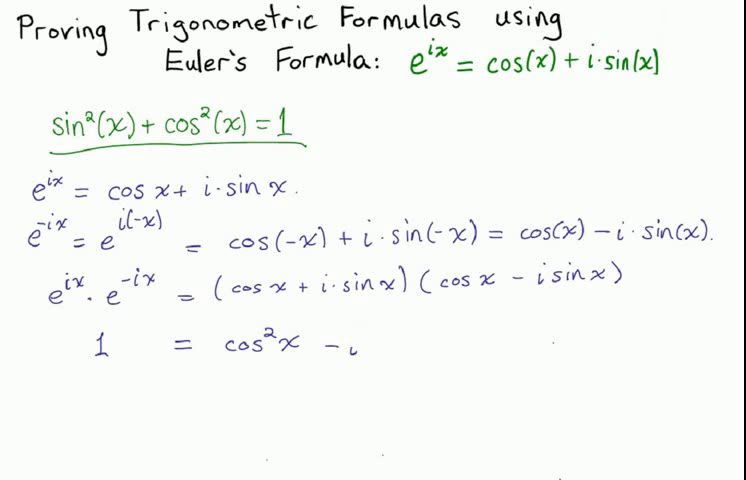 Proving Trigonometric Formulas using
Euler's Formula: e^{ix} = cos(x) + i·sin(x)
sin²(x) + cos²(x) = 1
e^{ix} = cos x + i·sin x.
e^{-ix} = e^{i(-x)} = cos(-x) + i·sin(-x) = cos(x) - i·sin(x).
e^{ix} · e^{-ix} = (cos x + i·sin x) (cos x - i sin x)
1 = cos²x - i